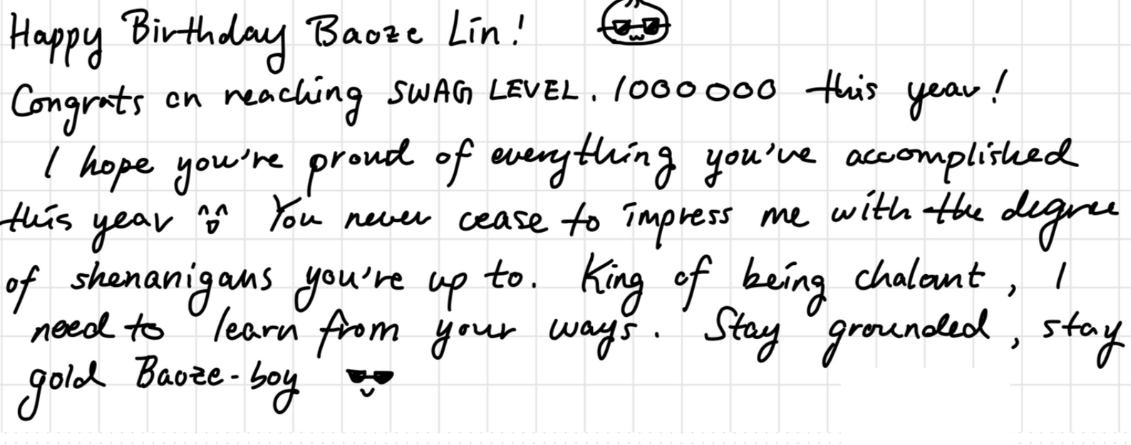 Happy Birthday Baoze Lin!
Congrats on reaching SWAG LEVEL. 1000000 this year!
I hope you're proud of everything you've accomplished
this year You never cease to impress me with the degree
of shenanigans you're up to. King of being chalant, I
need to learn from your ways. Stay grounded, stay
gold Baoze-boy